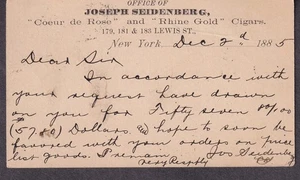 OFFICE OF
JOSEPH SEIDENBERG,
"Coeur de Rose" and "Rhine Gold" Cigars.
179, 181 & 183 LEWIS ST.,
New York Dec 2d 1885
Dear Sir
In accordance with
your request have drawn
on you for Fifty seven 80/100
(57.80) Dollars, hope to soon be
favored with your orders on price
list goods. I remain Jos Seidenberg
very Respfly